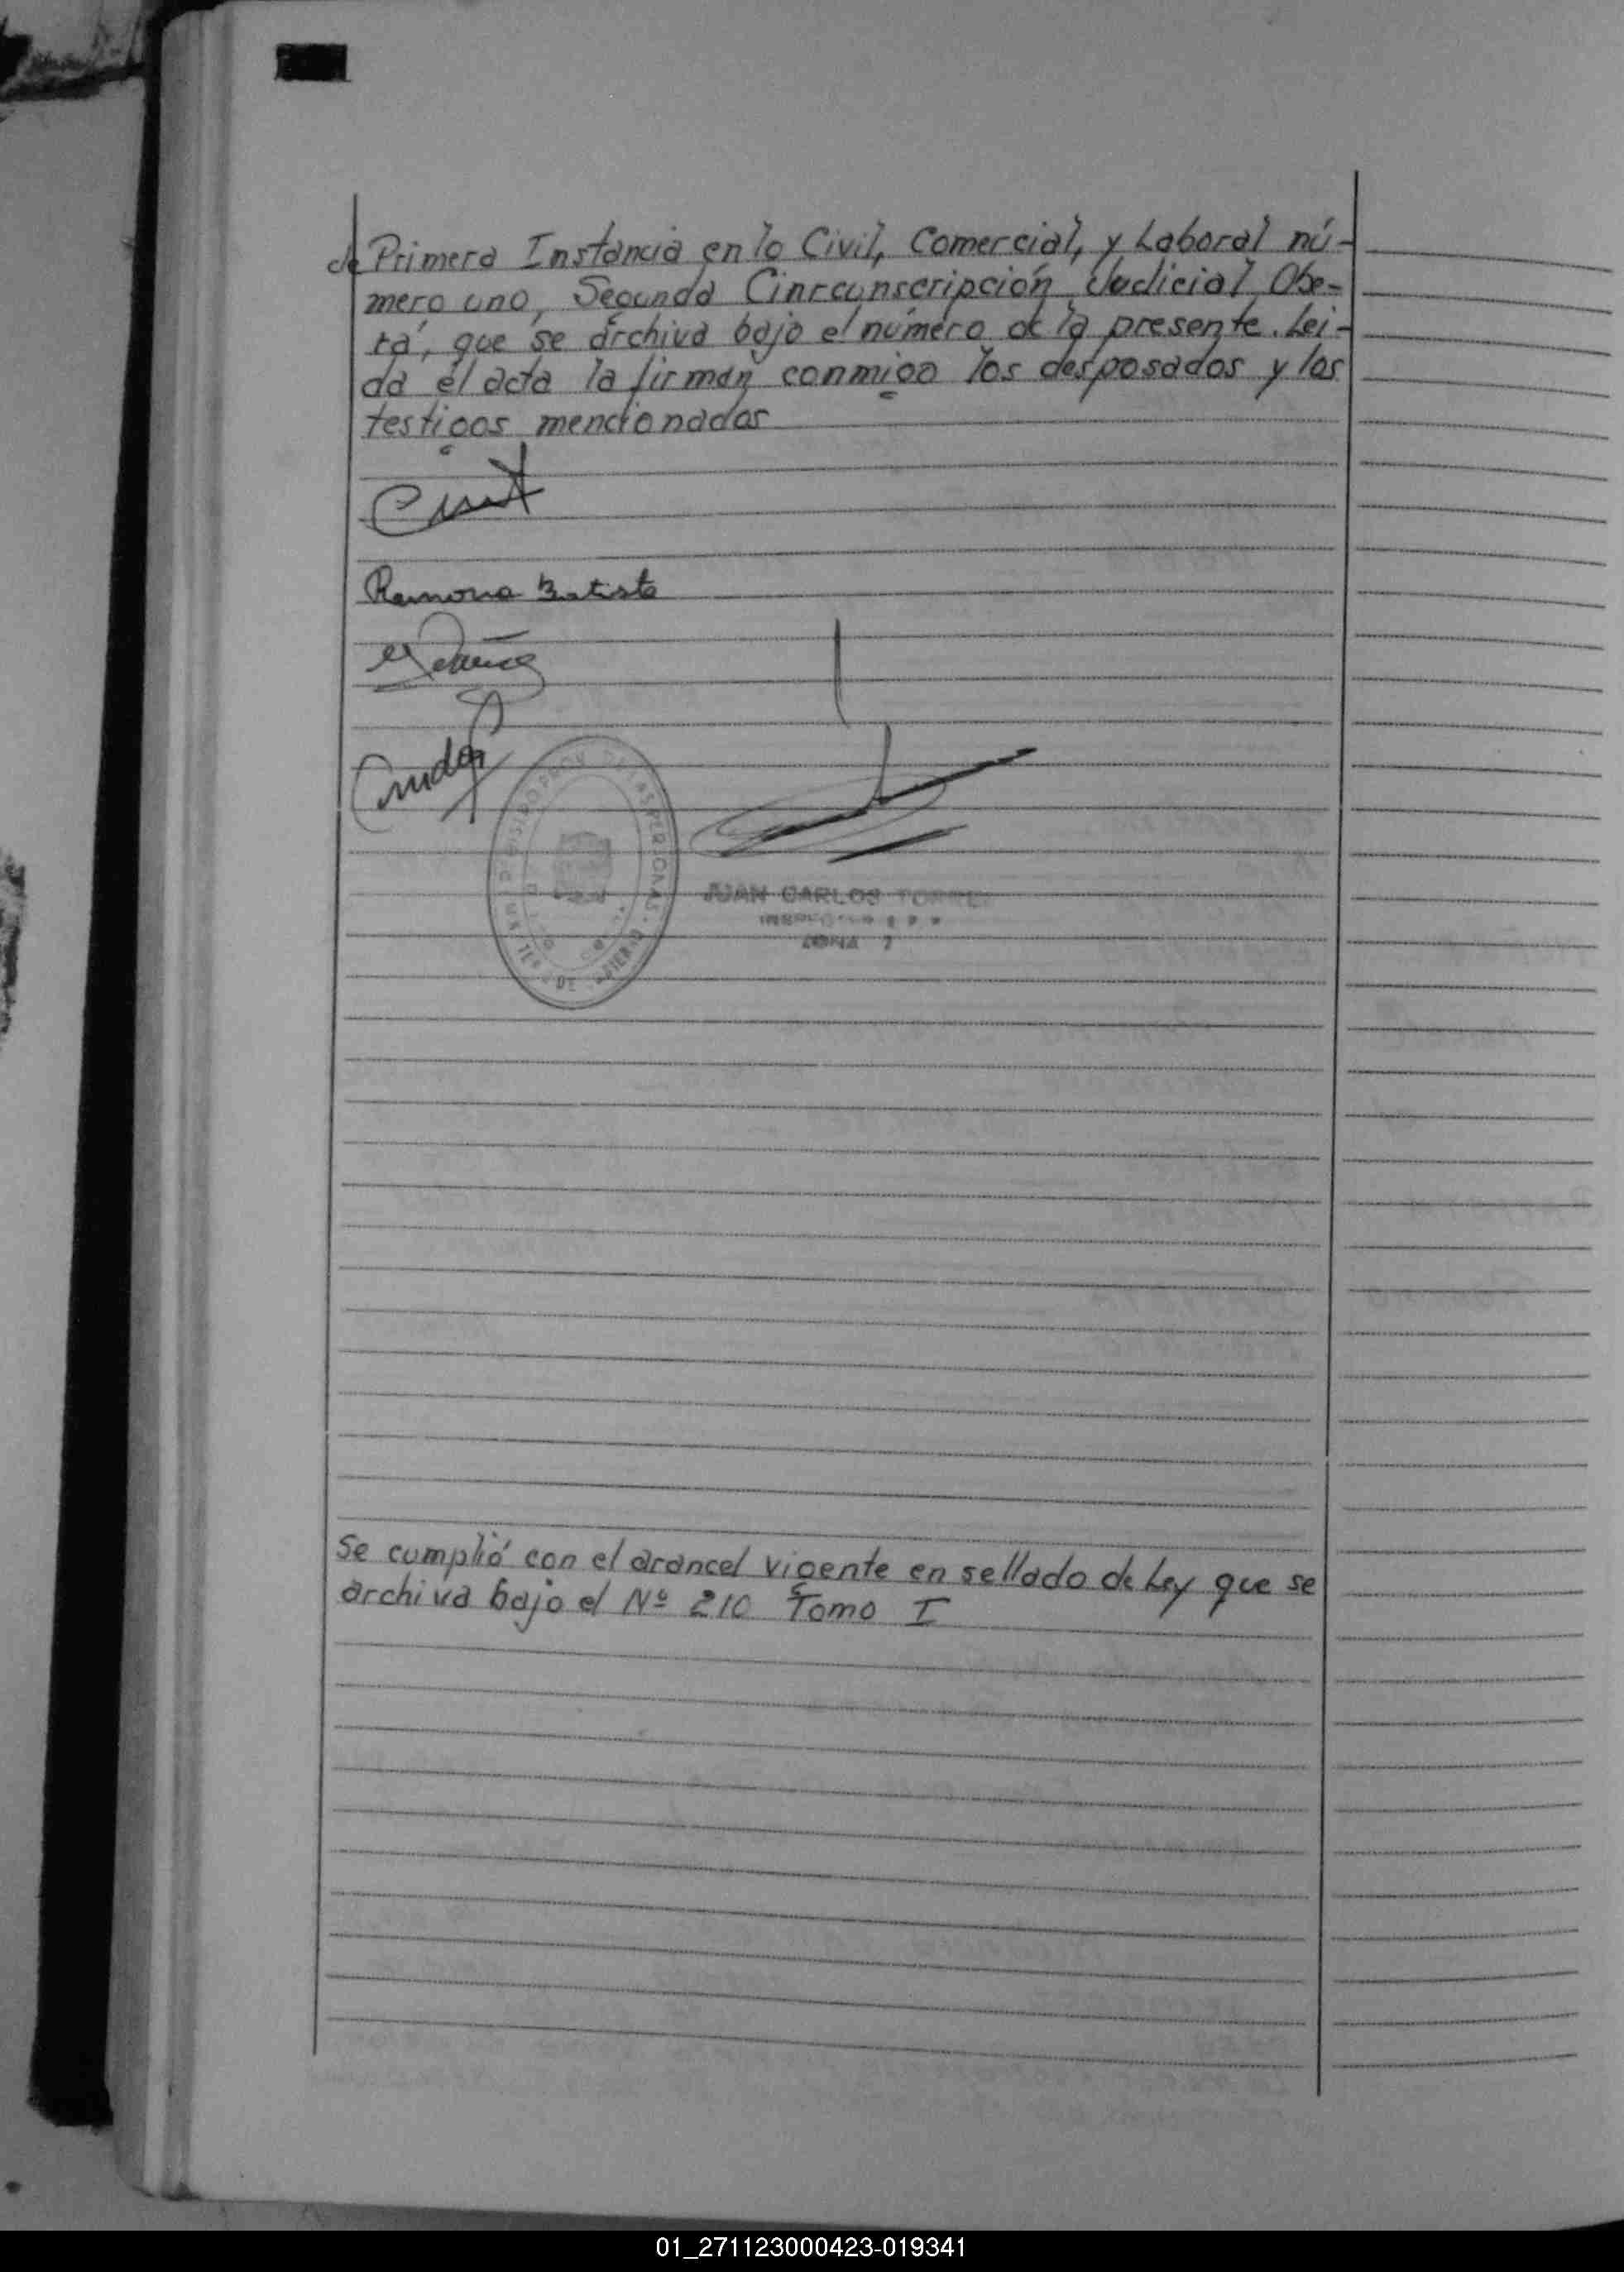 de Primera Instancia en lo Civil, Comercial, y Laboral nú-
mero uno, Segunda Cinrcunscripción Judicial Obe-
rá, que se archiva bajo el número de la presente. Lei-
da el acta la firman conmigo los desposados y los
testigos mencionados
Ramona Batista
JUAN CARLOS TORRE
ZONA 7
Se cumplió con el arancel vigente en sellado de Ley que se
archiva bajo el Nº 210 Tomo I
01_271123000423-019341